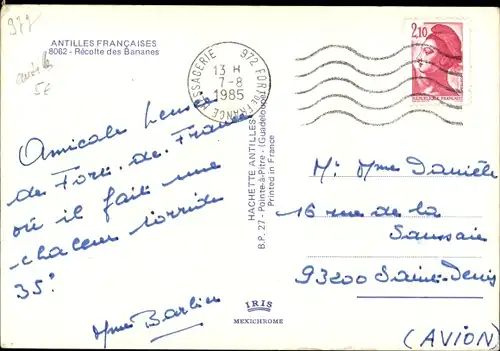 977
ANTILLES FRANÇAISES
8062 - Récolte des Bananes
5€
972 FORT DE FRANCE MESSAGERIE
13 H
7-8
1985
2,10
REPUBLIQUE FRANÇAISE
Amicale pensée
de Fort-de-France
où il fait une
chaleur torride
35°
Mme Barbier
HACHETTE ANTILLES
B.P. 27 - Pointe-à-Pitre - (Guadeloupe)
Printed in France
IRIS
MEXICHROME
Mr Mme Danièle
16 rue de la
Saussaie
93200 Saint-Denis
(AVION)